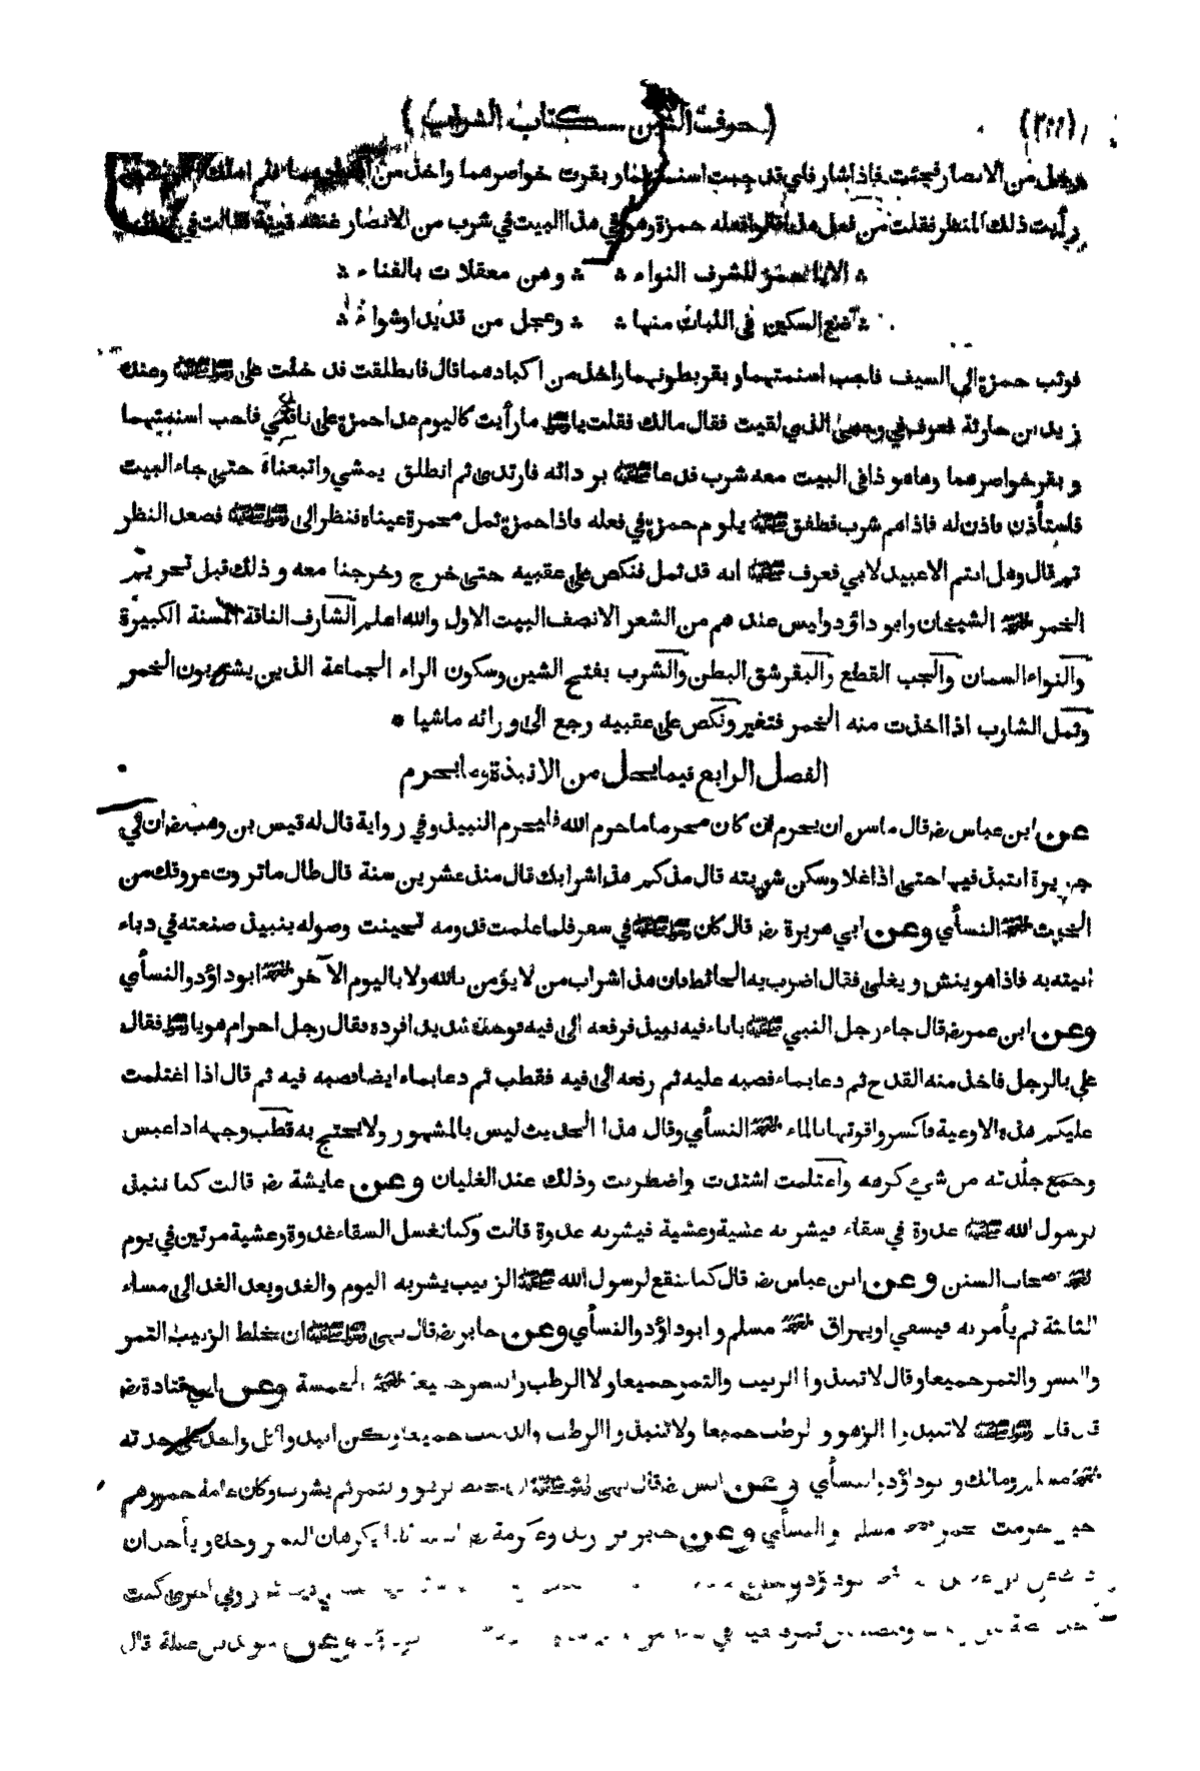 (حرف الشين كتاب الشراب)
رجل من الانصار فجئت فاذا شارفاي قد جبت اسنمتهما وبقرت خواصرهما واخذ من
رأيت ذلك المنظر فقلت من فعل هذا قالوا فعله حمزة وهو في هذا البيت في شرب من الانصار غنته قينة فقالت في
الا يا حمز للشرف النواء وهن معقلات بالفناء
ضع السكين في اللبات منها وعجل من قديد او شواء
فوثب حمزة الى السيف فاجب اسنمتهما وبقر بطونهما واخذ من اكبادهما قال فانطلقت فدخلت على رسول الله ﷺ وعنده
زيد بن حارثة فعرف في وجهي الذي لقيت فقال مالك فقلت يا رسول الله ما رأيت كاليوم عدا حمزة على ناقتي فاجب اسنمتهما
وبقر خواصرهما وها هو ذا في البيت معه شرب فدعا ﷺ بردائه فارتدى ثم انطلق يمشي واتبعناه حتى جاء البيت
فاستأذن فاذن له فاذا هم شرب فطفق ﷺ يلوم حمزة في فعله فاذا حمزة ثمل محمرة عيناه فنظر الى رسول الله ﷺ فصعد النظر
ثم قال وهل انتم الا عبيد لابي فعرف ﷺ انه قد ثمل فنكص على عقبيه حتى خرج وخرجنا معه وذلك قبل تحريم
الخمر اخرجه الشيخان وابو داؤد وليس عندهم من الشعر الا نصف البيت الاول والله اعلم الشارف الناقة المسنة الكبيرة
والنواء السمان والجب القطع والبقر شق البطن والشرب بفتح الشين وسكون الراء الجماعة الذين يشربون الخمر
وثمل الشارب اذا اخذت منه الخمر فتغير ونكص على عقبيه رجع الى ورائه ماشيا
الفصل الرابع فيما يحل من الانبذة وما يحرم
عن ابن عباس رض قال من سره ان يحرم ان كان محرما ما حرم الله فليحرم النبيذ وفي رواية قال له قيس بن وهب رض ان لي
جريرة انتبذ فيها حتى اذا غلا وسكن شربته قال مذ كم هذا شرابك قال منذ عشرين سنة قال طال ما تروت عروقك من
الخبث اخرجه النسأي وعن ابي هريرة رض قال كان رسول الله ﷺ في سفر فلما علمت قدومه تحينت وصوله بنبيذ صنعته في دباء
اتيته به فاذا هو ينش ويغلي فقال اضرب به الحائط فان هذا شراب من لا يؤمن بالله ولا باليوم الآخر اخرجه ابو داؤد والنسأي
وعن ابن عمر رض قال جاء رجل النبي ﷺ باناء فيه نبيذ فرفعه الى فيه فوجده شديدا فرده فقال رجل احرام هو يا رسول الله فقال
علي بالرجل فاخذ منه القدح ثم دعا بماء فصبه عليه ثم رفعه الى فيه فقطب ثم دعا بماء ايضا فصبه فيه ثم قال اذا اغتلمت
عليكم هذه الاوعية فاكسروا قوتها بالماء اخرجه النسأي وقال هذا الحديث ليس بالمشهور ولا يحتج به قطب وجهه اذا عبس
وجمع جلدته من شيء كرهه واغتلمت اشتدت واضطربت وذلك عند الغليان وعن عايشة رض قالت كنا ننبذ
لرسول الله ﷺ غدوة في سقاء فيشربه عشية وعشية فيشربه غدوة قالت وكنا نغسل السقاء غدوة وعشية مرتين في يوم
اخرجه اصحاب السنن وعن ابن عباس رض قال كنا ننقع لرسول الله ﷺ الزبيب يشربه اليوم والغد وبعد الغد الى مساء
الثالثة ثم يأمر به فيسقي او يهراق اخرجه مسلم وابو داؤد والنسأي وعن جابر رض قال نهى رسول الله ﷺ ان نخلط الزبيب التمر
والبسر والتمر جميعا وقال لا تنبذوا الزبيب والتمر جميعا ولا الرطب والبسر جميعا اخرجه الخمسة وعن ابي قتادة رض
قال قال رسول الله ﷺ لا تنبذوا الزهو والرطب جميعا ولا تنبذوا الرطب والزبيب جميعا ولكن انبذوا كل واحد على حدته
اخرجه مسلم ومالك وابو داؤد والنسأي وعن انس رض قال نهى رسول الله ﷺ ان يخلط الزهو والتمر ثم يشرب وكان عامة خمورهم
حين حرمت الخمر اخرجه مسلم والنسأي وعن جابر بن زيد وعكرمة رض انهما كانا يكرهان البسر وحده ويأخذان
ابو داؤد وفي اخرى كنت
قال